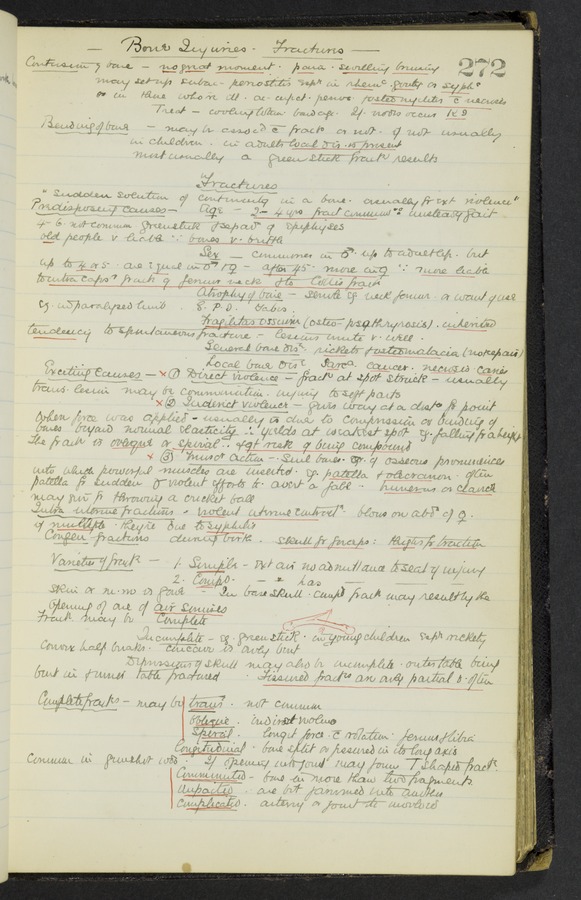 Bone Injuries. Fractures
272
Contusion of bone - no great moment. pain. swelling bruising
may set up subac. periostitis esp. in rheum. gouty or syph.
or in those whom dt. ac. infect. perios. & osteomyelitis c necrosis
Treat - cooling lotion bandage. If nodes occur KI
Bending of bone - may be assoc. c fract. or not. if not usually
in children. in adults local dis. is present
most usually a green stick fract. results
Fractures
"Sudden solution of continuity in a bone. usually fr ext violence"
Predisposing causes - Age - 2-4 yrs fract common ∵ unsteady gait
4-6 not common greenstick & separ. of epiphyses
old people v liable ∵ bones v. brittle
Sex - commoner in ♂ up to adult life. but
up to 4 or 5 are equal in ♂ & ♀ - after 45 - more in ♀ ∵ more liable
to intra caps. fract. of femur neck & to Colles frac.
Atrophy of bone - senile eg neck femur. or want of use
eg. in paralysed limb G.P.I. tabes.
Fragilitas ossium (osteo-psathyrosis). inherited
tendency to spontaneous fracture - lesions unite v. well.
General bone dis. rickets & osteomalacia (no repair)
Local bone dis. Sarc. cancer. necrosis caries
Exciting causes - x (1) Direct violence - fract at spot struck - usually
trans. lesion may be comminution. injury to soft parts
x (2) Indirect violence - gives way at a dist. fr point
where force was applied - usually is due to compression or bending of
bones beyond normal elasticity ∴ yields at weakest spot eg. falling fr a height
the fract. is oblique or spiral ∴ gt risk of being compound
x (3) Musc. action - Small bones or of osseous prominences
into which powerful muscles are inserted. eg. patella & olecranon. often
patella fr sudden & violent efforts to avert a fall - humerus or clavicle
may run fr throwing a cricket ball
Intra uterine fractures - violent uterine contract. blows on abd. of ♀.
if multiple they're due to syphilis
Congen fractures during birth. skull fr forceps: thighs fr traction
Varieties of fract. - 1. Simple - ext air no admittance to seat of injury
2. Comp. - " has -
skin or m.m is gone In base skull. comp. fract may result by the
opening of one of air sinuses
Fract. may be Complete
Incomplete - eg. green stick. in young children esp. rickety
convex half breaks. concave is only bent
Depressions of skull may also be incomplete. outer table being
bent in & inner table fractured. Fissured fract. are only partial v. often
Complete fracts - may be trans. not common
oblique. indirect violence
Spiral. longit force c rotation. femur & tibia
Longitudinal. bone split or fissured in its long axis
common in gunshot wds. If opening into joint may form T shaped fract.
Comminuted - bone in more than two fragments
Impacted. one bit jammed into another
Complicated. artery or joint etc involved